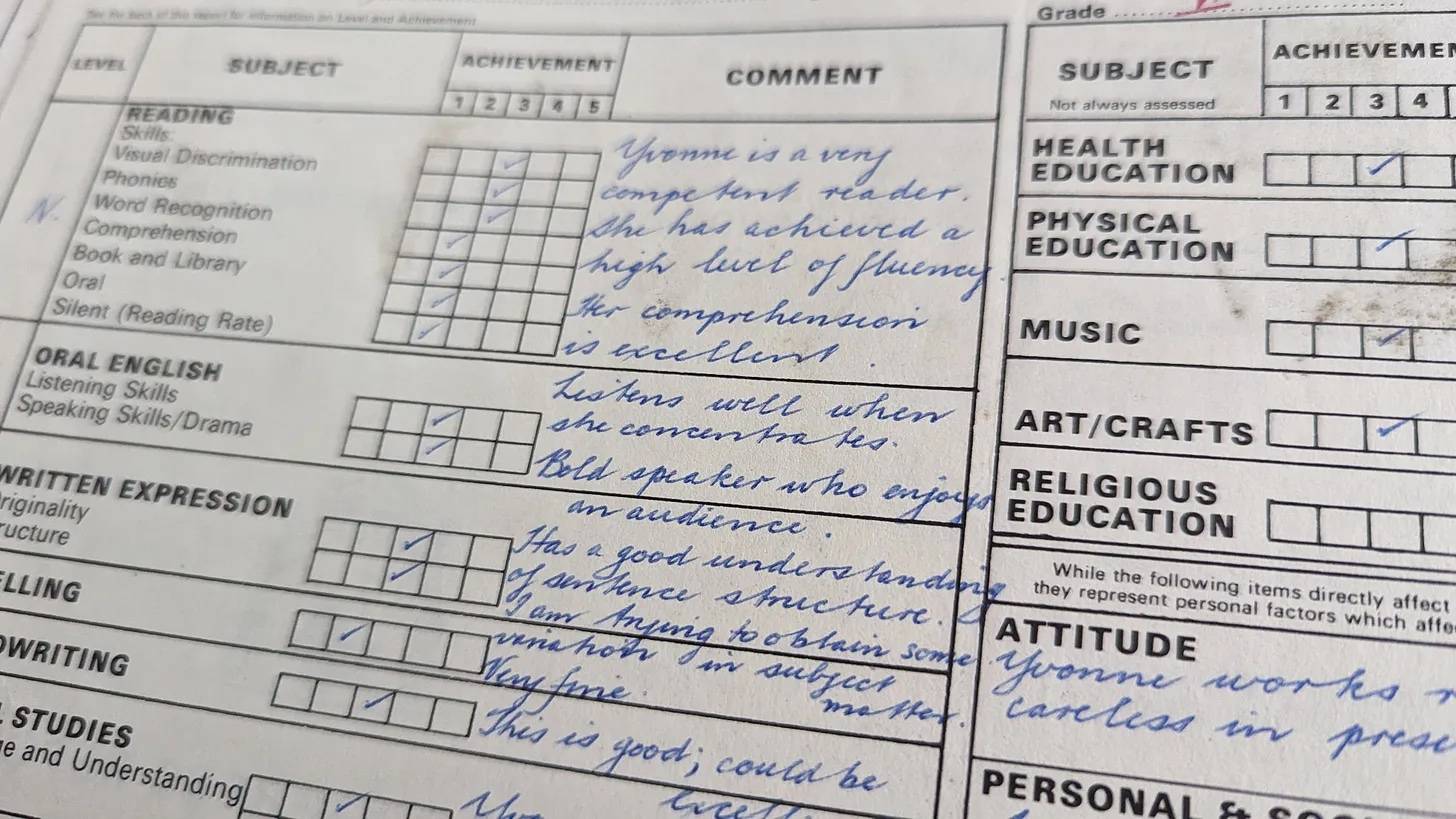 See the back of this report for information on Level and Achievement
LEVEL
SUBJECT
ACHIEVEMENT
1 2 3 4 5
COMMENT
READING
Skills:
Visual Discrimination
Phonics
Word Recognition
Comprehension
Book and Library
Oral
Silent (Reading Rate)
N.
Yvonne is a very
competent reader.
She has achieved a
high level of fluency.
Her comprehension
is excellent.
ORAL ENGLISH
Listening Skills
Speaking Skills/Drama
Listens well when
she concentrates.
Bold speaker who enjoys
an audience.
WRITTEN EXPRESSION
riginality
ructure
Has a good understanding
of sentence structure.
I am trying to obtain some
variation in subject
matter.
LLING
Very fine.
DWRITING
This is good; could be
L STUDIES
ge and Understanding
Grade
SUBJECT
Not always assessed
ACHIEVEMEN
1 2 3 4
HEALTH
EDUCATION
PHYSICAL
EDUCATION
MUSIC
ART/CRAFTS
RELIGIOUS
EDUCATION
While the following items directly affect
they represent personal factors which affe
ATTITUDE
Yvonne works
careless in prese
PERSONAL & SOC